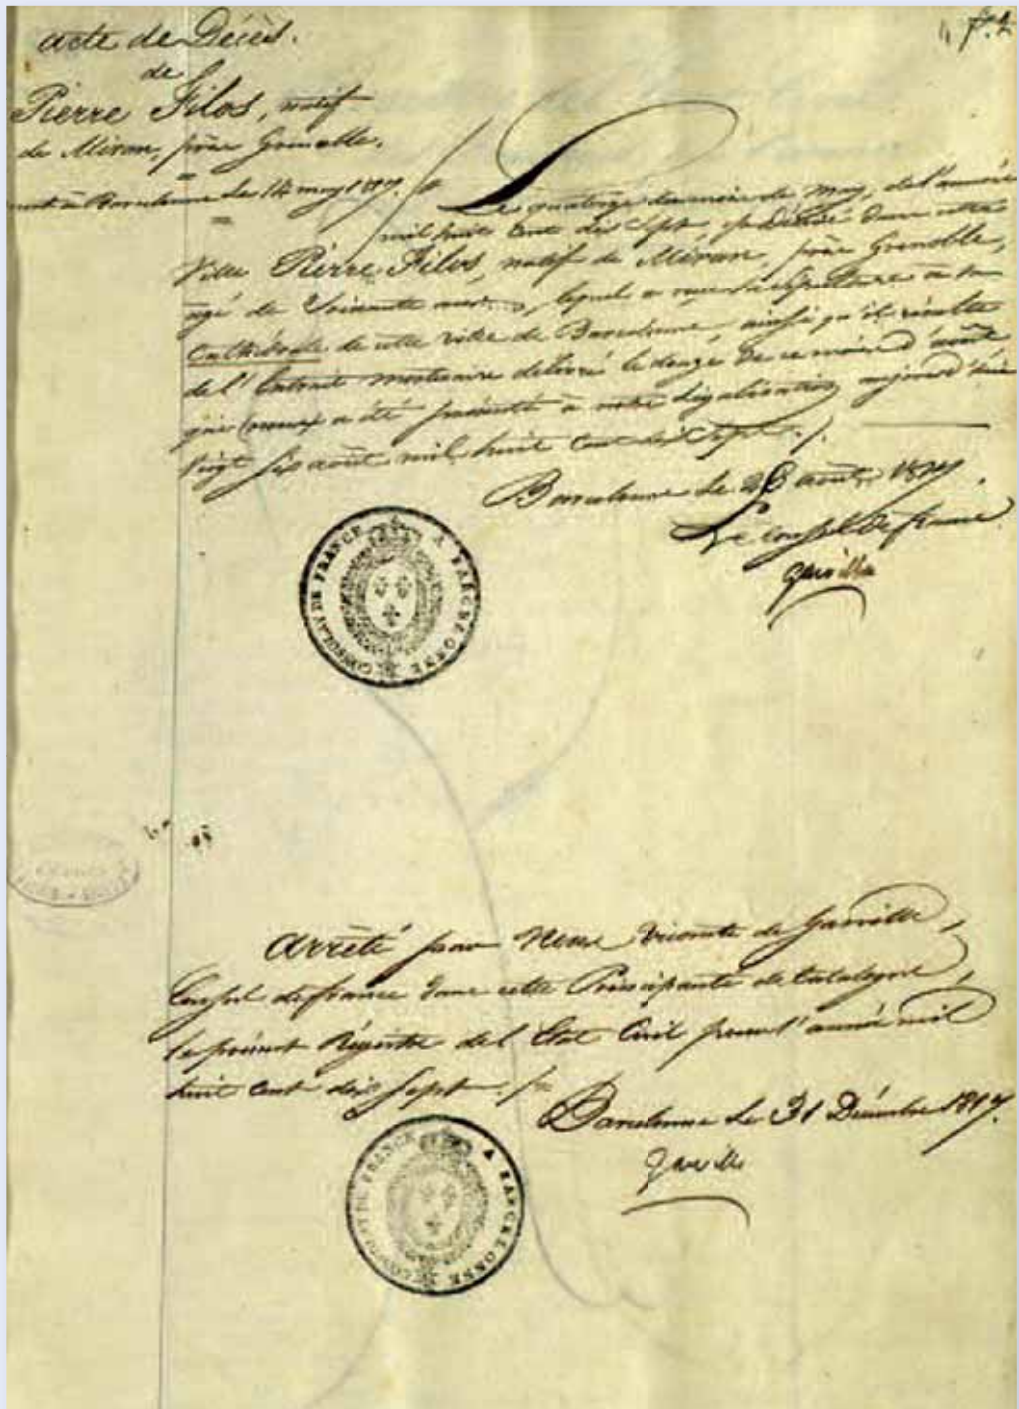 f.2
acte de Décès.
de
Pierre Filos, natif
de Miran, près Grenoble.
mort à Barcelonne le 14 may 1817.
Le quatorze du mois de may, de l'année
mil huit cent dix sept, est décédé dans cette
Ville Pierre Filos, natif de Miran, près Grenoble,
agé de Soixante ans, lequel a reçu la sépulture à la
Cathédrale de cette ville de Barcelonne, ainsi qu'il résulte
de l'Extrait mortuaire délivré le douze de ce mois d'août
qui a été présenté à notre Légalisation aujourd'hui
vingt six août mil huit cent dix sept./.
Barcelonne le 26 août 1817.
Le consul de france
CONSULAT DE FRANCE A BARCELONNE
arrêté par Nous Vicomte de
Consul de france dans cette Principauté de Catalogne,
le présent Régistre de l'Etat Civil pour l'année mil
huit cent dix sept./.
Barcelonne le 31 Décembre 1817.
CONSULAT DE FRANCE A BARCELONNE